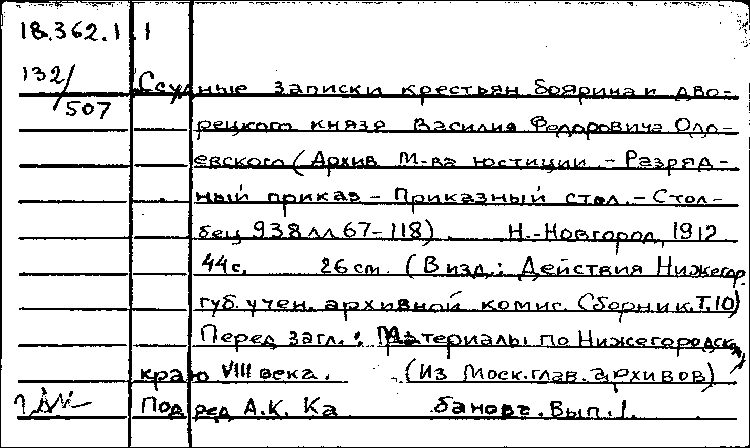 18.362.1.1
132/507 Ссудные записки крестьян боярина и дво-
рецкого князя Василия Федоровича Одо-
евского (Архив М-ва юстиции. - Разряд-
ный приказ - Приказный стол. - Стол-
бец 938 лл 67-118). Н.-Новгород, 1912
44 с. 26 см. (В изд.: Действия Нижегор.
губ. учен. архивной комис. Сборник. Т. 10)
Перед загл.: Материалы по Нижегородском
краю VIII века. (Из Моск. глав. архивов)
Под ред А.К. Ка бановъ. Вып. 1.